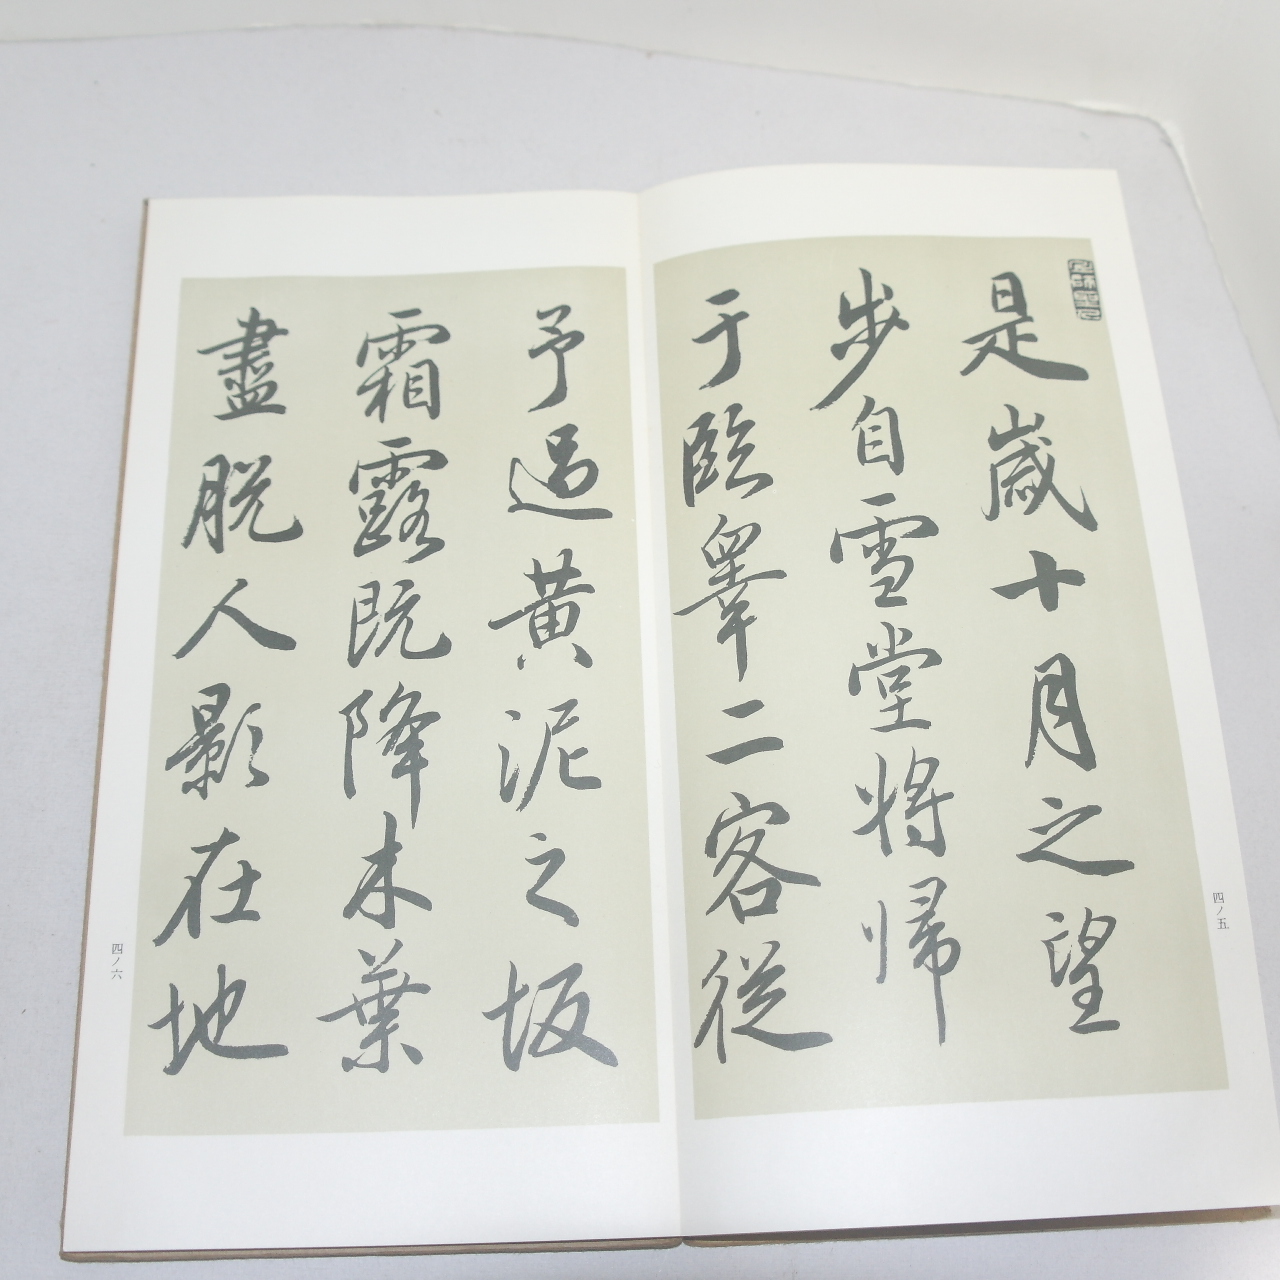 是歲十月之望
步自雪堂將歸
于臨皋二客從
四ノ五
予過黃泥之坂
霜露既降木葉
盡脫人影在地
四ノ六